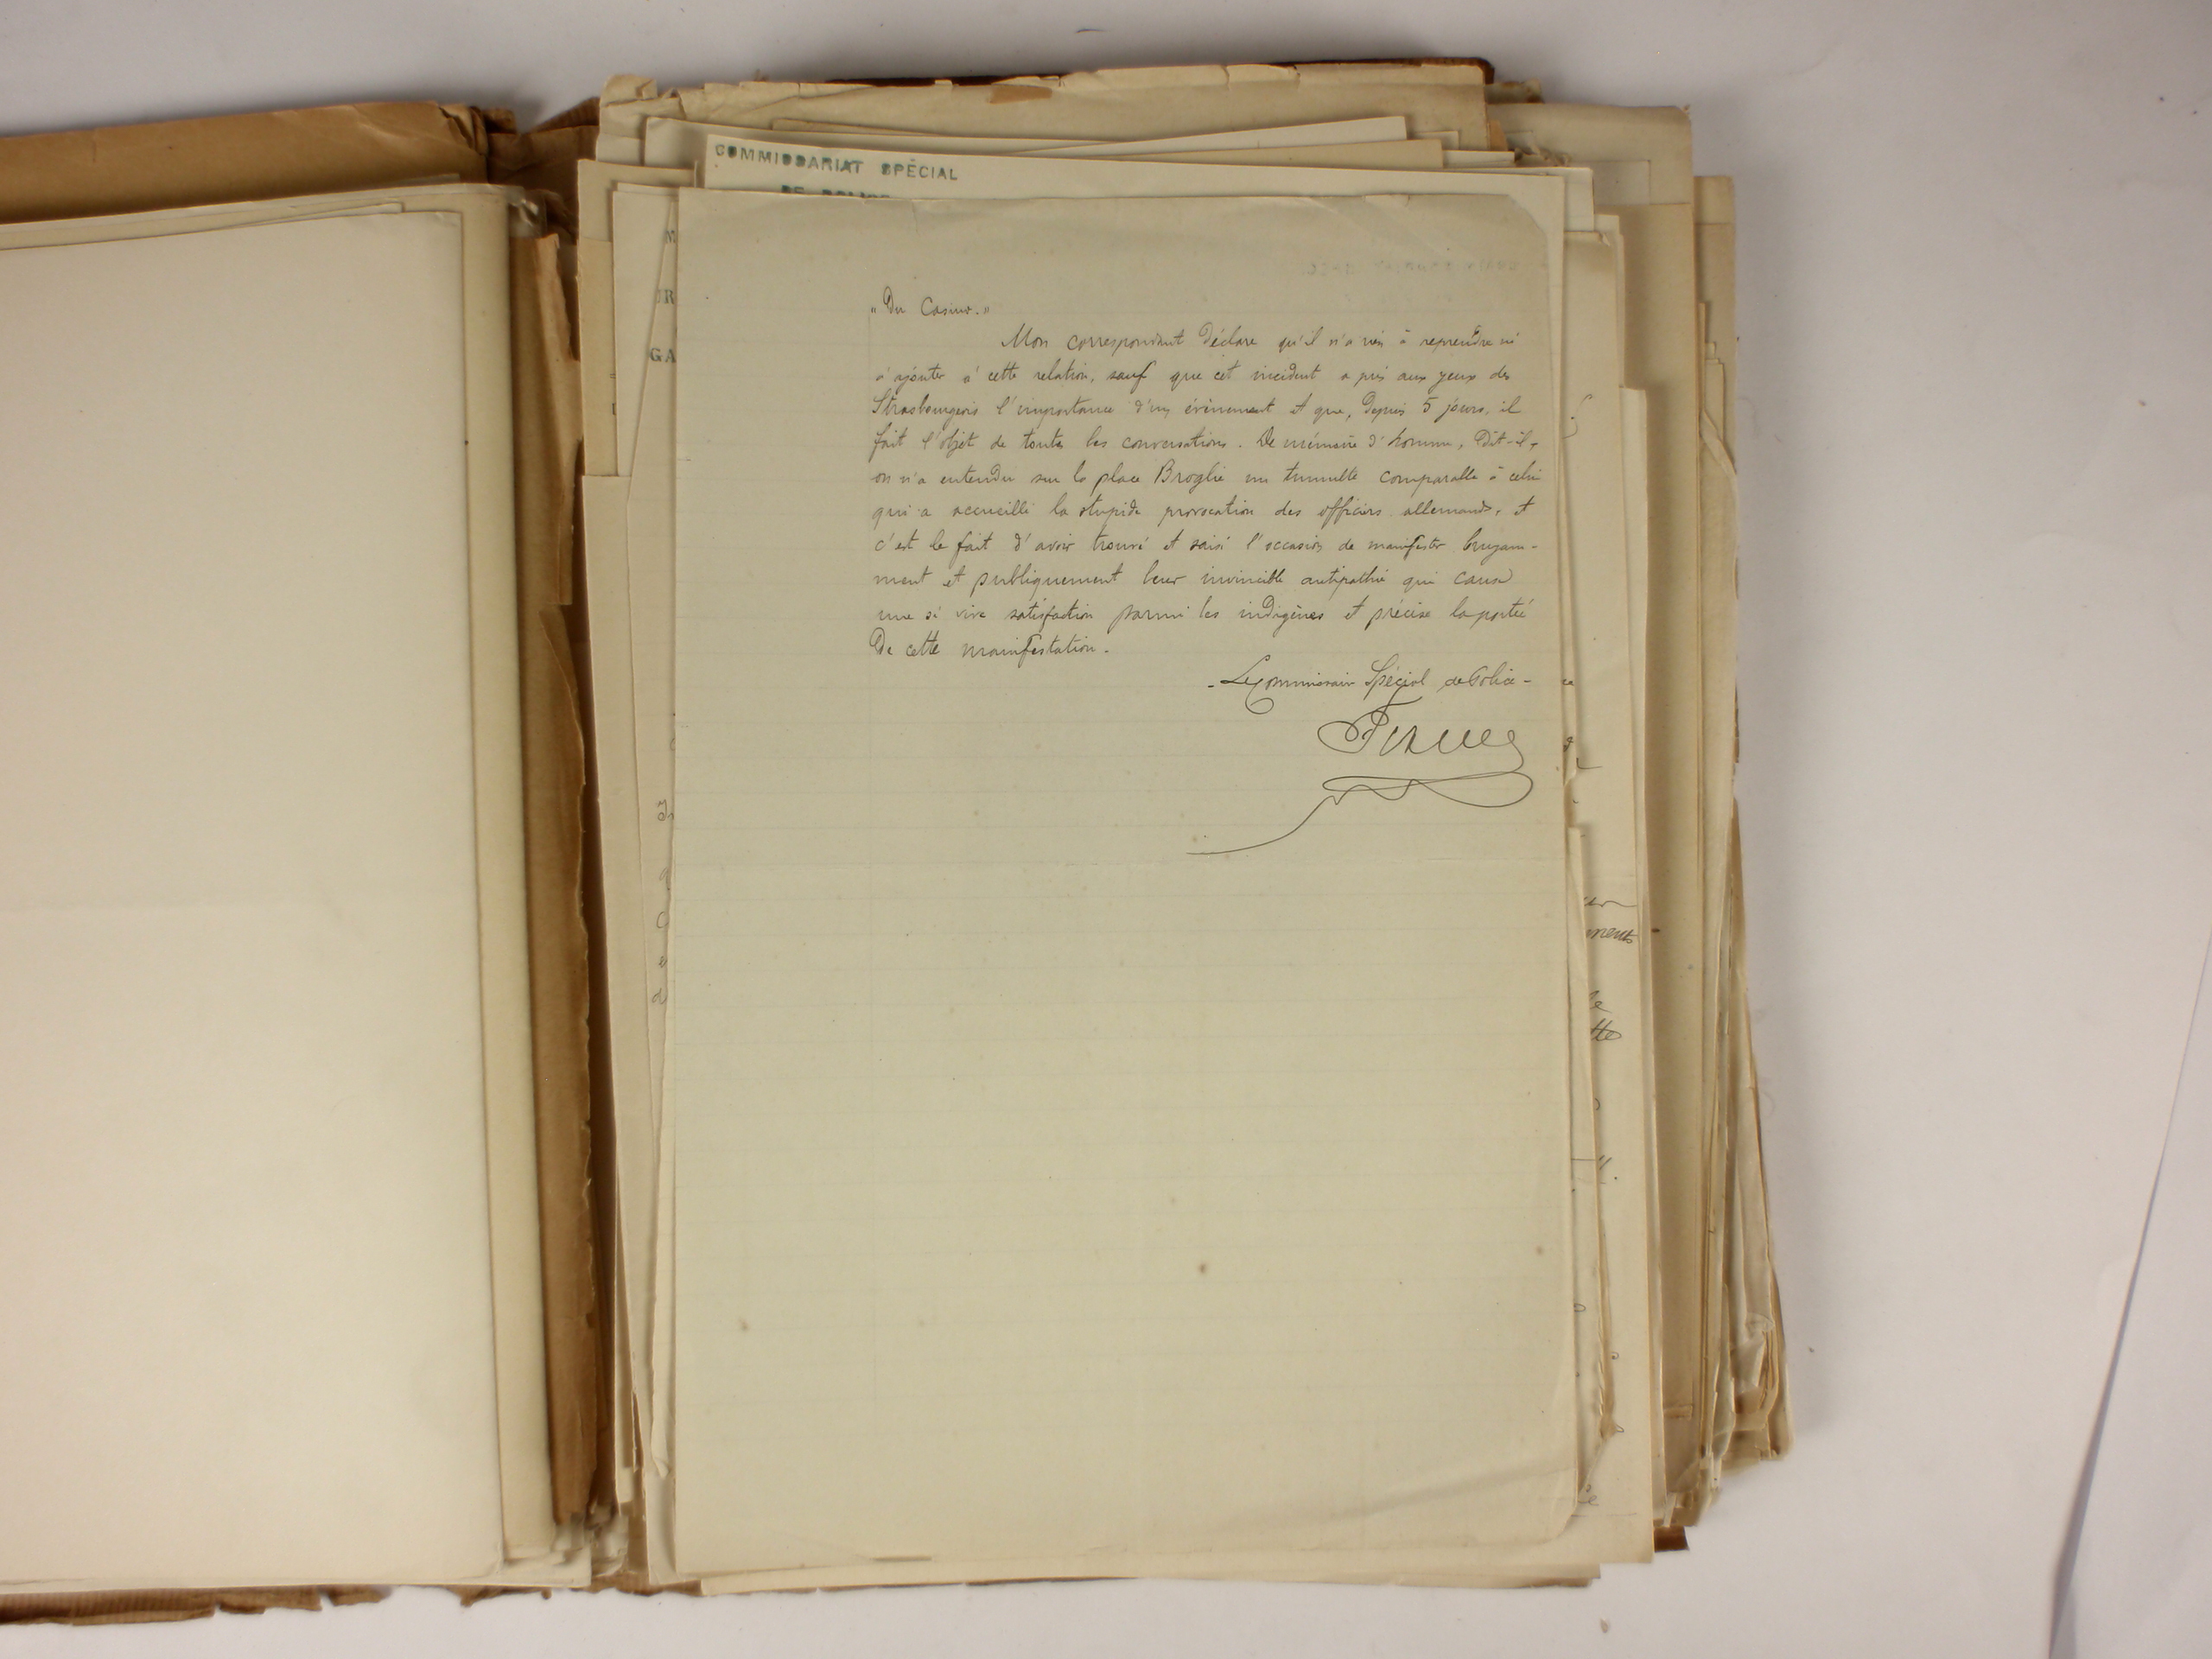 COMMISSARIAT SPÉCIAL
DE POLICE
„ Du Casino. "
Mon correspondant déclare qu'il n'a rien à reprendre ni
à ajouter à cette relation, sauf que cet incident a pris aux yeux des
Strasbourgeois l'importance d'un évènement et que, depuis 5 jours, il
fait l'objet de toutes les conversations. De mémoire d'homme, dit-il,
on n'a entendu sur la place Broglie un tumulte comparable à celui
qui a accueilli la stupide provocation des officiers allemands, et
c'est le fait d'avoir trouvé et saisi l'occasion de manifester bruyam-
ment et publiquement leur invincible antipathie qui cause
une si vive satisfaction parmi les indigènes et précise la portée
de cette manifestation.
- Le Commissaire Spécial de Police -